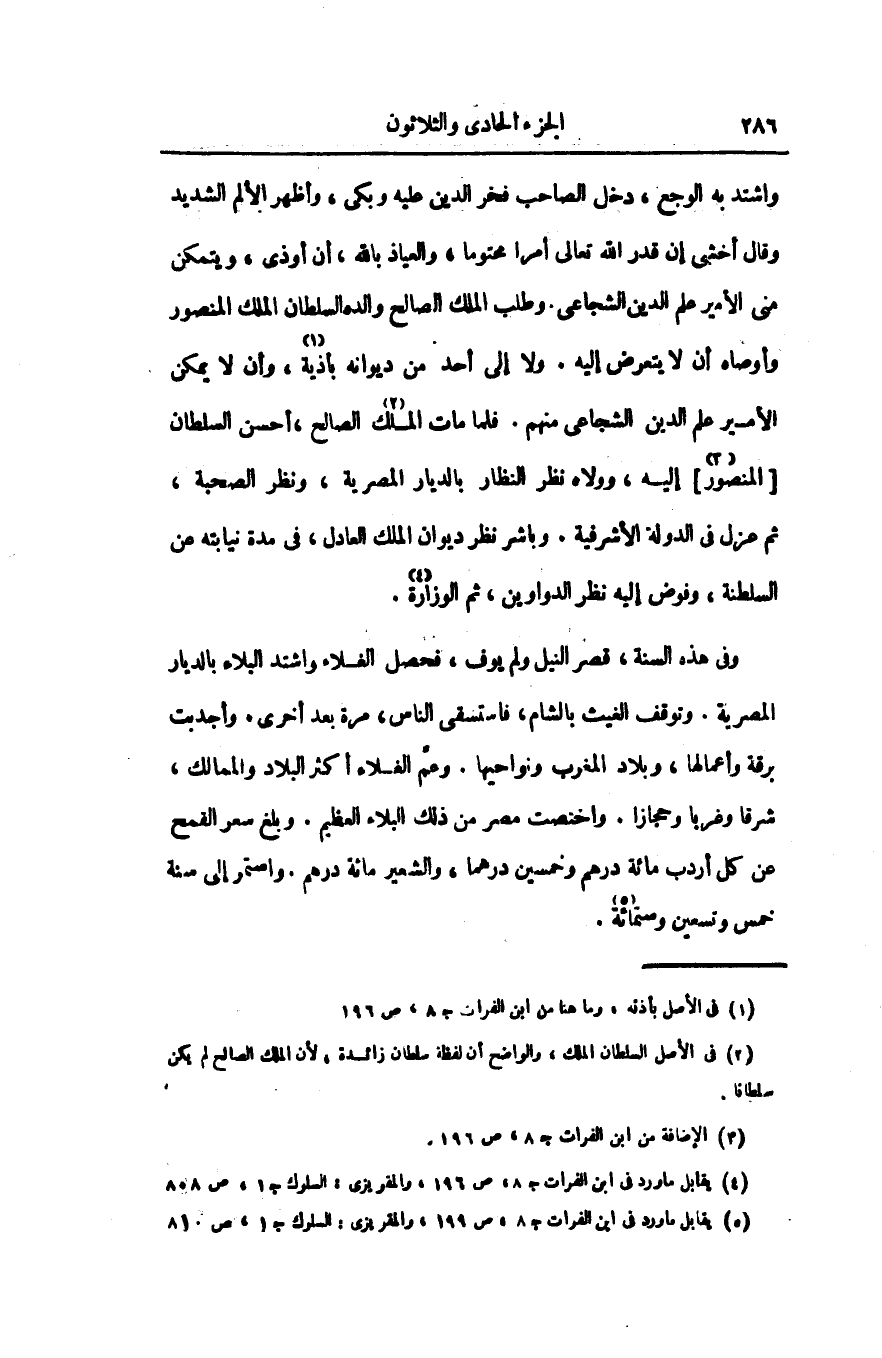 ٢٨٦
الجزء الحادى والثلاثون
واشتد به الوجع ، دخل الصاحب فخر الدين عليه وبكى ، وأظهر الألم الشديد
وقال أخشى إن قدر الله تعالى أمرا محتوما ، والعياذ بالله ، أن أوذى ، ويتمكن
منى الأمير علم الدين الشجاعى . وطلب الملك الصالح والده السلطان الملك المنصور
وأوصاه أن لا يتعرض إليه . ولا إلى أحد من ديوانه بأذية (١) ، وأن لا يمكن
الأمير علم الدين الشجاعى منهم . فلما مات الملك (٢) الصالح ، أحسن السلطان
[ المنصور (٣) ] إليه ، وولاه نظر النظار بالديار المصرية ، ونظر الصحبة ،
ثم عزل فى الدولة الأشرفية . وباشر نظر ديوان الملك العادل ، فى مدة نيابته عن
السلطنة ، وفوض إليه نظر الدواوين ، ثم الوزارة (٤) .
وفى هذه السنة ، قصر النيل ولم يوف ، فحصل الغلاء واشتد البلاء بالديار
المصرية . وتوقف الغيث بالشام ، فاستسقى الناس ، مرة بعد أخرى . وأجدبت
برقة وأعمالها ، وبلاد المغرب ونواحيها . وعمّ الغلاء أكثر البلاد والممالك ،
شرقا وغربا وحجازا . واختصت مصر من ذلك البلاء العظيم . وبلغ سعر القمح
عن كل أردب مائة درهم وخمسين درهما ، والشعير مائة درهم . واستمر إلى سنة
خمس وتسعين وستمائة (٥) .
(١) فى الأصل بأذته ، وما هنا من ابن الفرات ج ٨ ، ص ١٩٦
(٢) فى الأصل السلطان الملك ، والواضح أن لفظة سلطان زائدة ، لأن الملك الصالح لم يكن
سلطانا .
(٣) الإضافة من ابن الفرات ج ٨ ، ص ١٩٦ .
(٤) يقابل ماورد فى ابن الفرات ج ٨ ، ص ١٩٦ ، والمقريزى : السلوك ج ١ ، ص ٨٠٨
(٥) يقابل ماورد فى ابن الفرات ج ٨ ، ص ١٩٩ ، والمقريزى : السلوك ج ١ ، ص ٨١٠